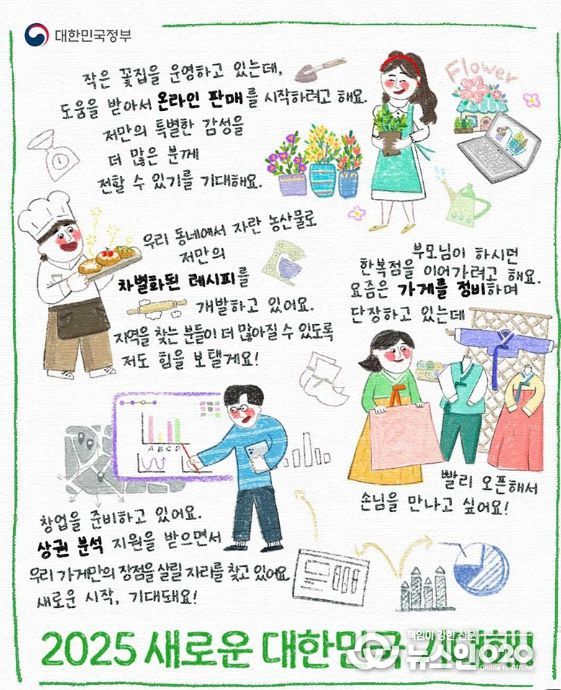 대한민국정부
작은 꽃집을 운영하고 있는데,
도움을 받아서 온라인 판매를 시작하려고 해요.
저만의 특별한 감성을
더 많은 분께
전할 수 있기를 기대해요.
Flower
우리 동네에서 자란 농산물로
저만의
차별화된 레시피를
개발하고 있어요.
지역을 찾는 분들이 더 많아질 수 있도록
저도 힘을 보탤게요!
부모님이 하시던
한복점을 이어가려고 해요.
요즘은 가게를 정비하며
단장하고 있는데
빨리 오픈해서
손님을 만나고 싶어요!
A B C D
창업을 준비하고 있어요.
상권 분석 지원을 받으면서
우리 가게만의 장점을 살릴 자리를 찾고 있어요
새로운 시작, 기대돼요!
2025 새로운 대한민국
뉴스인020